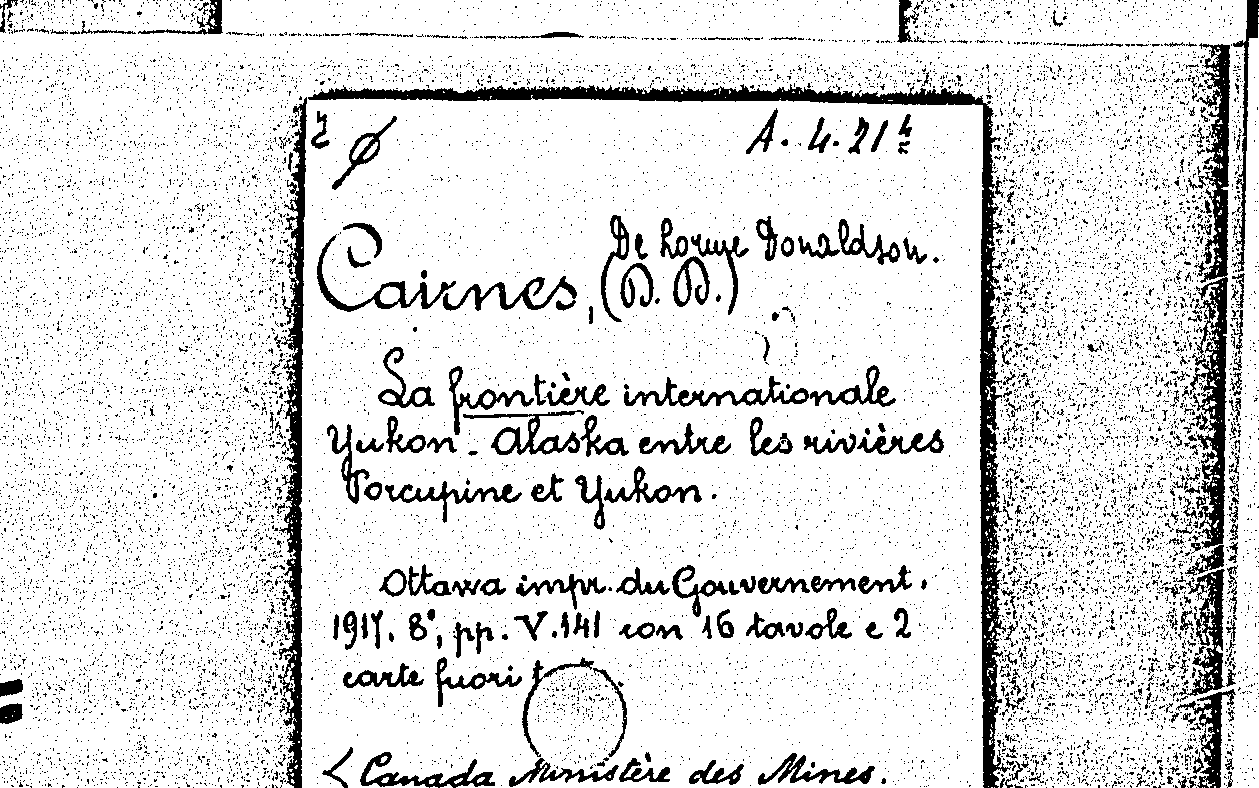 A. 4. 21
De Lorme Donaldson.
Cairnes, (D. D.)
La frontière internationale
Yukon - Alaska entre les rivières
Porcupine et Yukon.
Ottawa impr. du Gouvernement.
1917. 8°, pp. V.141 con 16 tavole e 2
carte fuori t
< Canada Ministère des Mines.